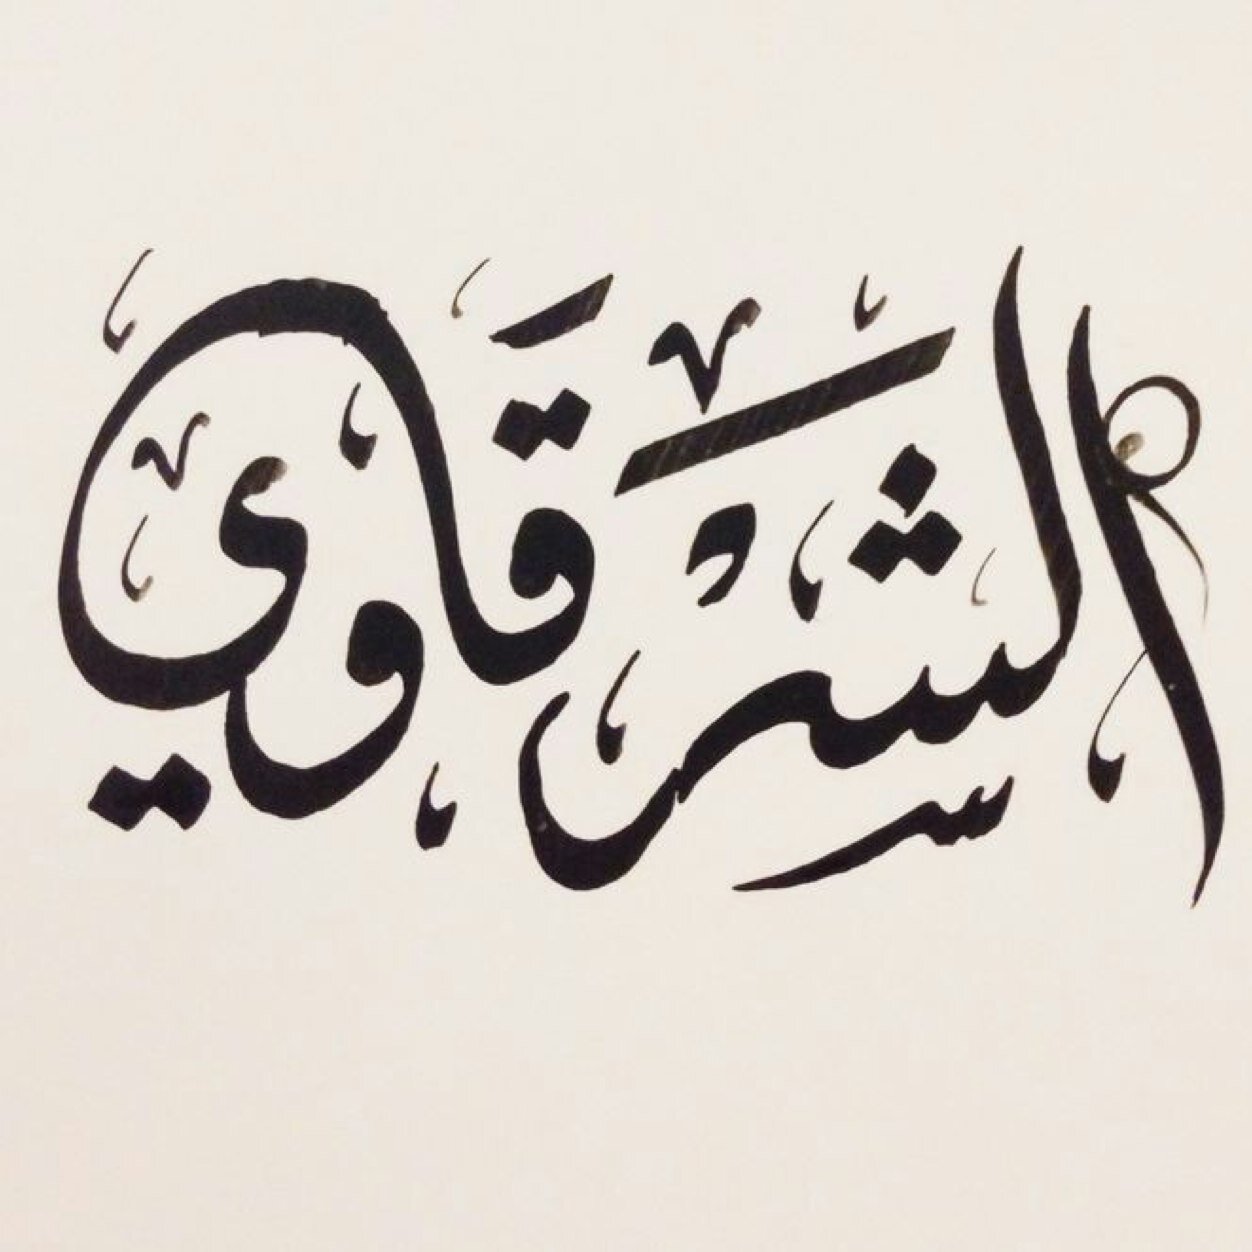 الشرقاوي